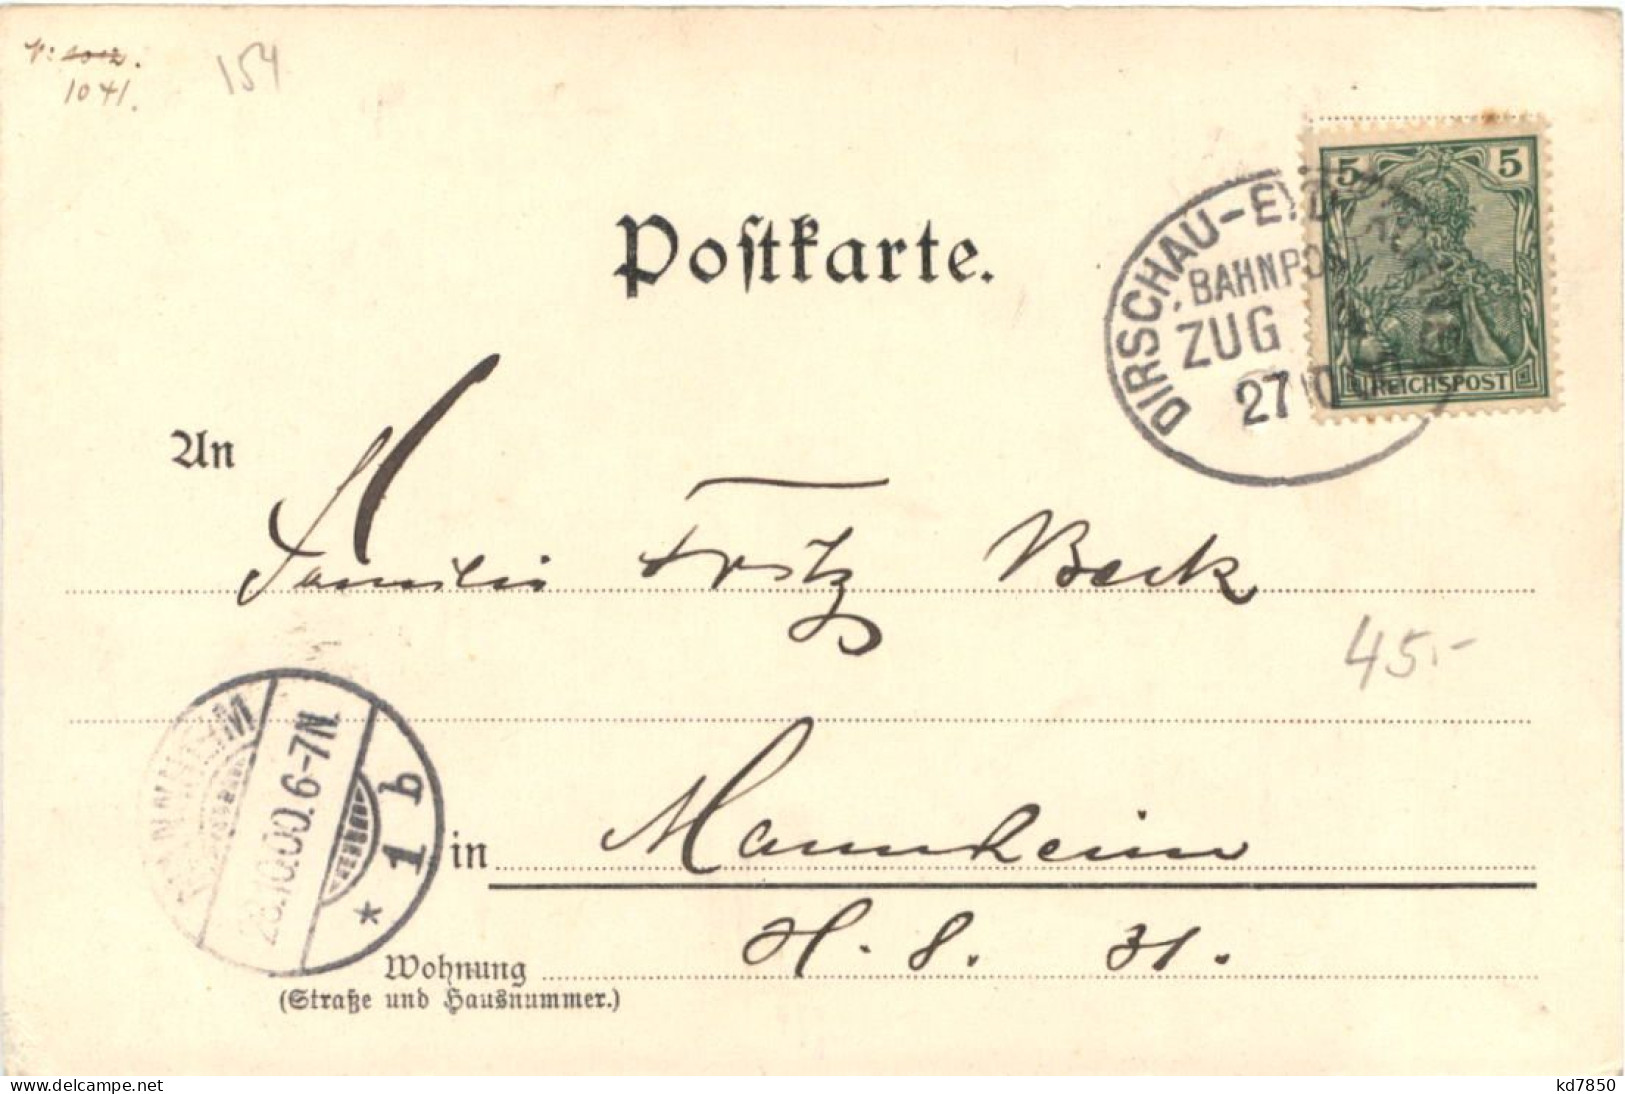 1041.
154
5 5
REICHSPOST
DIRSCHAU-EYD
BAHNPO
ZUG
27 10
Postkarte.
An
Familie Fritz Beck
45.-
MANNHEIM
28.10.00.6-7N.
* 1 b
in Mannheim
H. 8. 31.
Wohnung
(Straße und Hausnummer.)
www.delcampe.net
kd7850